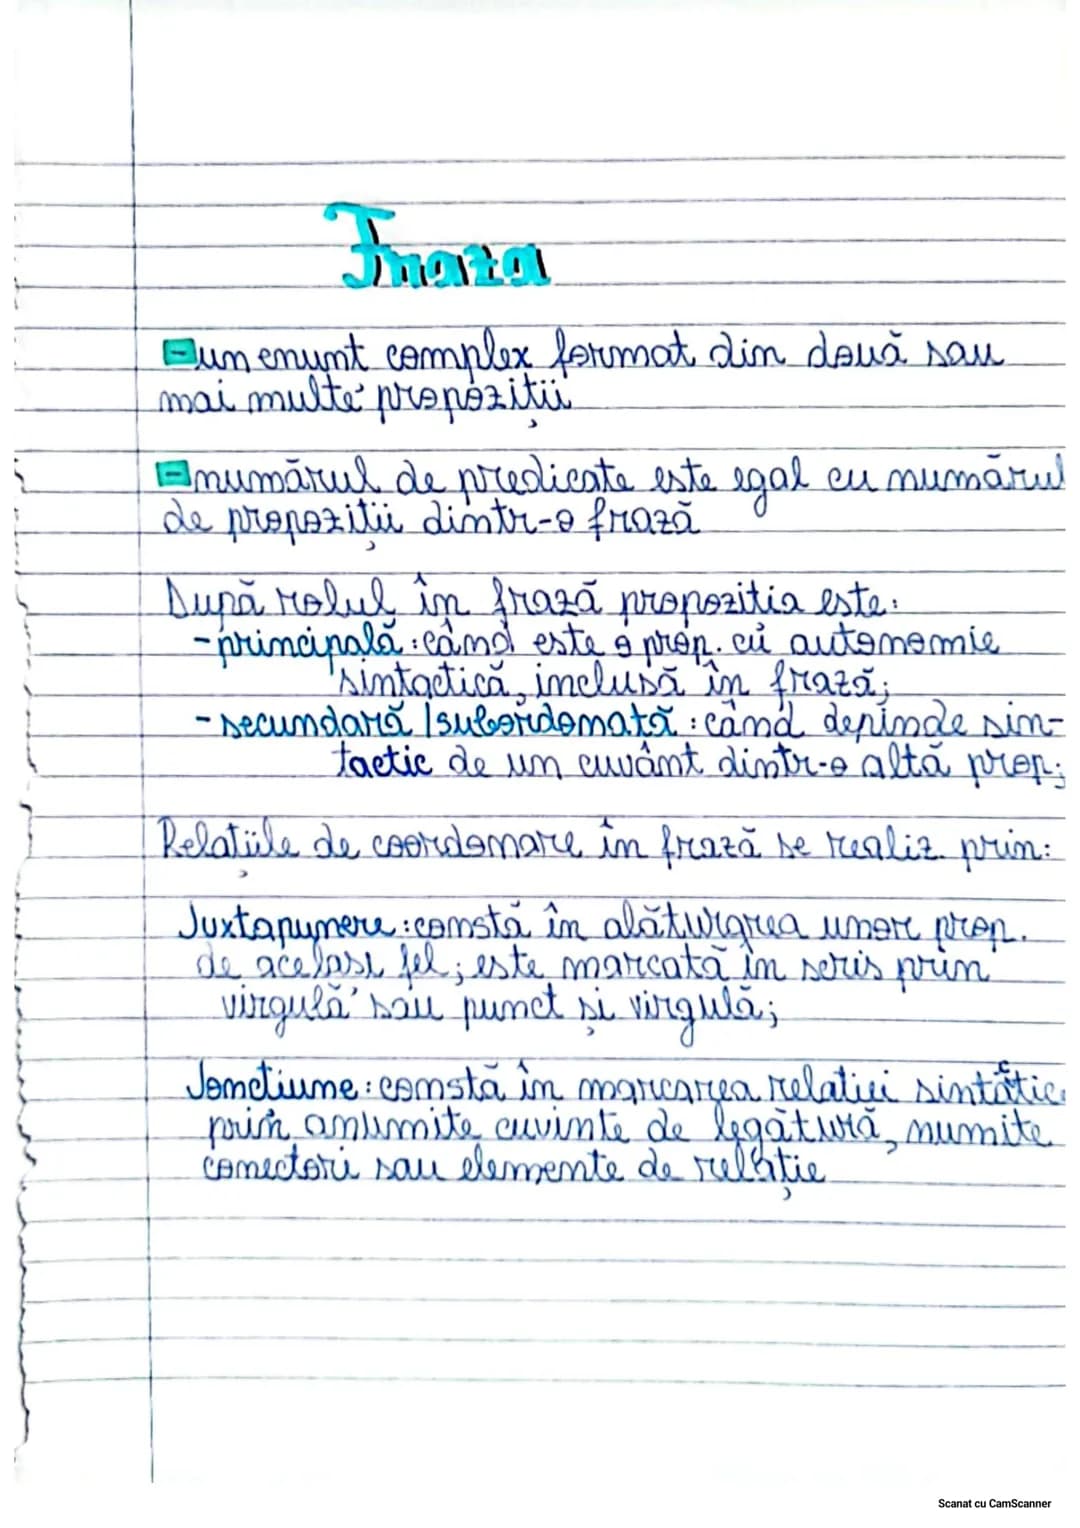 Fraza
- un enunț complex format din două sau
mai multe propoziții
- numărul de predicate este egal cu numărul
de propoziții dintr-o frază
După rolul în frază propozitia este:
- principală : când este o prop. cu autonomie
sintactică, inclusă în frază;
- secundară /subordonată : când depinde sin-
tactic de un cuvânt dintr-o altă prop;
Relațiile de coordonare în frază se realiz. prin:
Juxtapunere : constă în alăturarea unor prop.
de acelasi fel; este marcată în scris prin
virgulă sau punct și virgulă;
Joncțiune : constă în marcarea relatiei sintactic.
prin anumite cuvinte de legătură, numite
conectori sau elemente de relație
Scanat cu CamScanner